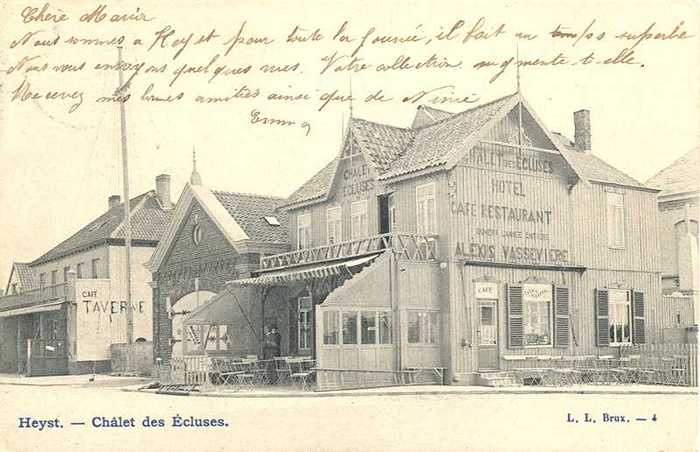 Chère Maria
Nous sommes à Heyst pour toute la journée, il fait un temps superbe
Nous vous envoyons quelques mes. Votre collection augmente-t-elle.
Recevez mes bonnes amitiés ainsi que de
Emma
CHALET
DES
ÉCLUSES
CHALET DES ÉCLUSES
HOTEL
CAFÉ RESTAURANT
OUVERT L'ANNÉE ENTIÈRE
ALEXIS VASSEVIÈRE
CAFÉ
TAVERNE
CAFÉ
Heyst. — Châlet des Écluses.
L. L. Brux. — 4